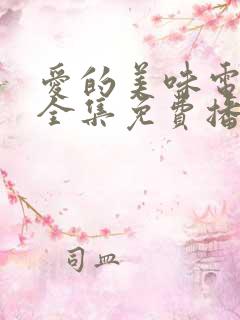 愛的美味電
全集免費播
司皿